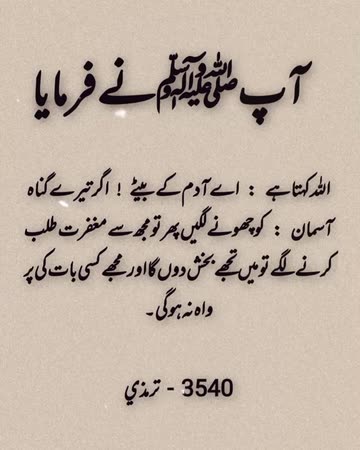 آپ ﷺ نے فرمایا
اللہ کہتا ہے : اے آدم کے بیٹے ! اگر تیرے گناہ
آسمان : کو چھونے لگیں پھر تو مجھ سے مغفرت طلب
کرنے لگے تو میں تجھے بخش دوں گا اور مجھے کسی بات کی پر
واہ نہ ہوگی۔
3540 - ترمذي